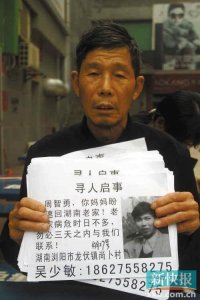 寻人启事
寻人启事
周智勇，你妈妈盼
回湖南老家！老
病危时日不多，
勿必三天之内与我们
联系！
湖南浏阳市龙伏镇尚卜村
吴少敏:18627558275
新快报
.com.cn